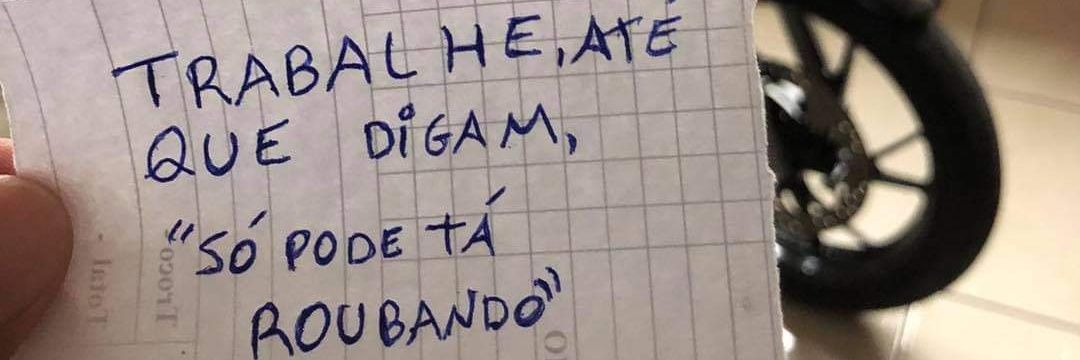 TRABALHE, ATÉ
QUE DIGAM,
"SÓ PODE TÁ
ROUBANDO"
Total
Troco